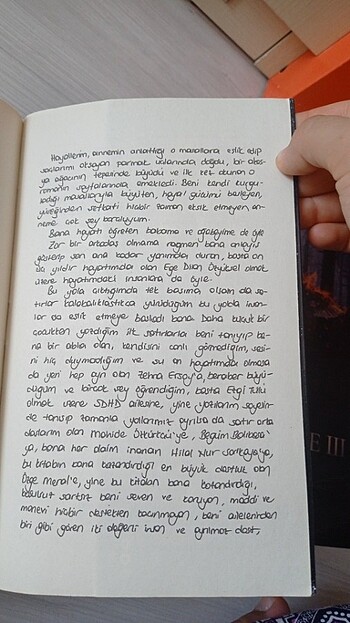 Hayallerim, annemin anlattığı o masallara eşlik edip
saçlarımı okşayan parmak uçlarında doğdu, bir
ağacının tepesinde büyüdü ve ilk kez okunan o
romanın sayfalarında emekledi. Beni kendi kurgu-
ladığı masallarıyla büyüten, hayal gücümü besleyen,
yüreğinden şefkati hiçbir zaman eksik etmeyen an-
neme çok şey borçluyum.
Bana hayatı öğreten babama ve ağabeyime de öyle.
Zor bir arkadaş olmama rağmen bana anlayış
gösterip son ana kadar yanımda duran, başta on
yıldır hayatımda olan Ege Özyücel olmak
üzere hayatımdaki insanlara da öyle.
Bu yola çıktığımda tek başıma olsam da sa-
tırlar kalabalıklaştıkça yürüdüğüm bu yolda insan-
lar da eşlik etmeye başladı bana. Daha küçük bir
çocukken yazdığım ilk satırlarla beni tanıyıp ba-
na bir abla olan, kendisini canlı görmediğim, sesi-
ni hiç duymadığım ve şu an hayatımda olmasa
da yeri hep ayrı olan Zehra Ersoy'a, beraber büyü-
düğüm ve birçok şey öğrendiğim, başta Ezgi
olmak üzere SDHD ailesine, yine yazılarım sayesin-
de tanışıp zamanla yollarımız ayrılsa da satır arka-
daşlarım olan Öztürkcü'ye, Begüm
ya, bana her daim inanan Hilal Nur Sarıkaya'ya,
bu kitabın bana kazandırdığı en büyük dostluk olan
Özge Meral'e, yine bu kitabın bana kazandırdığı,
koşulsuz şartsız beni seven ve koruyan, maddi ve
manevi hiçbir destekten kaçınmayan, beni ailelerinden
biri gibi gören iki değerli insan ve ayrılmaz dost,